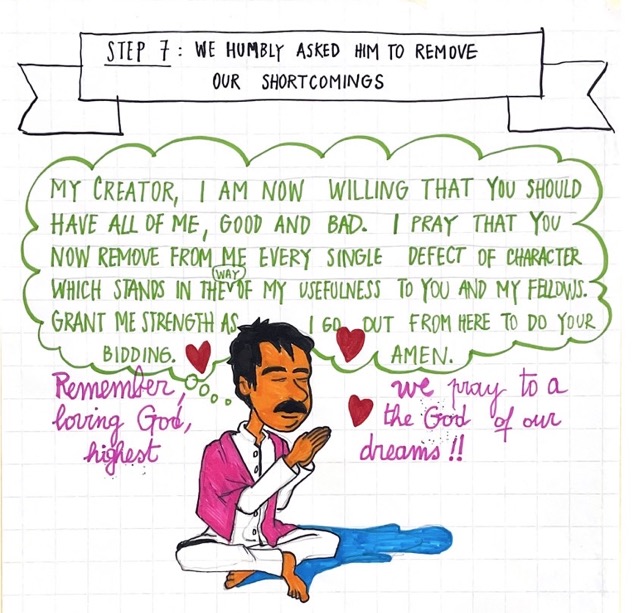 STEP 7: WE HUMBLY ASKED HIM TO REMOVE
OUR SHORTCOMINGS
MY CREATOR, I AM NOW WILLING THAT YOU SHOULD
HAVE ALL OF ME, GOOD AND BAD. I PRAY THAT YOU
NOW REMOVE FROM ME EVERY SINGLE DEFECT OF CHARACTER
WHICH STANDS IN THE WAY OF MY USEFULNESS TO YOU AND MY FELLOWS.
GRANT ME STRENGTH AS I GO OUT FROM HERE TO DO YOUR
BIDDING. AMEN.
Remember, we pray to a
loving God, the God of our
highest dreams!!